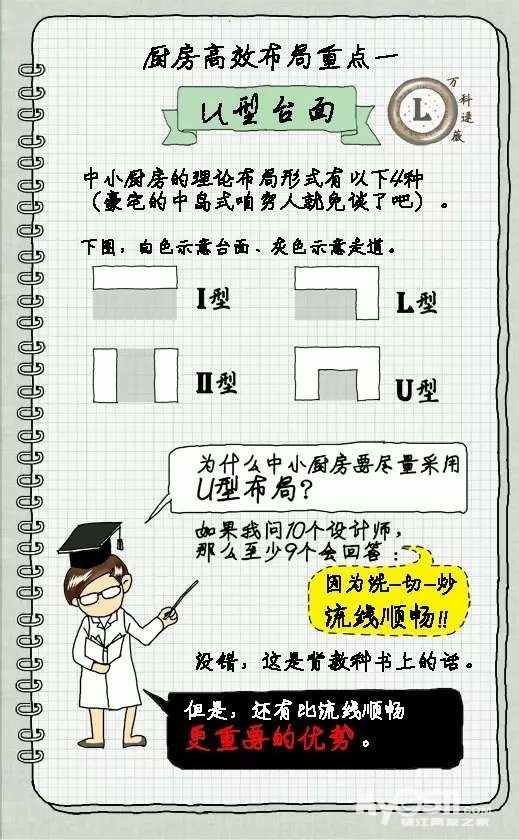 厨房高效布局重点一
U型台面
L
万科逯薇
中小厨房的理论布局形式有以下4种
（豪宅的中岛式咱穷人就免谈了吧）。
下图，白色示意台面、灰色示意走道。
I型
L型
II型
U型
为什么中小厨房要尽量采用
U型布局？
如果我问10个设计师，
那么至少9个会回答：
因为洗-切-炒
流线顺畅!!
没错，这是背教科书上的话。
但是，还有比流线顺畅
更重要的优势。